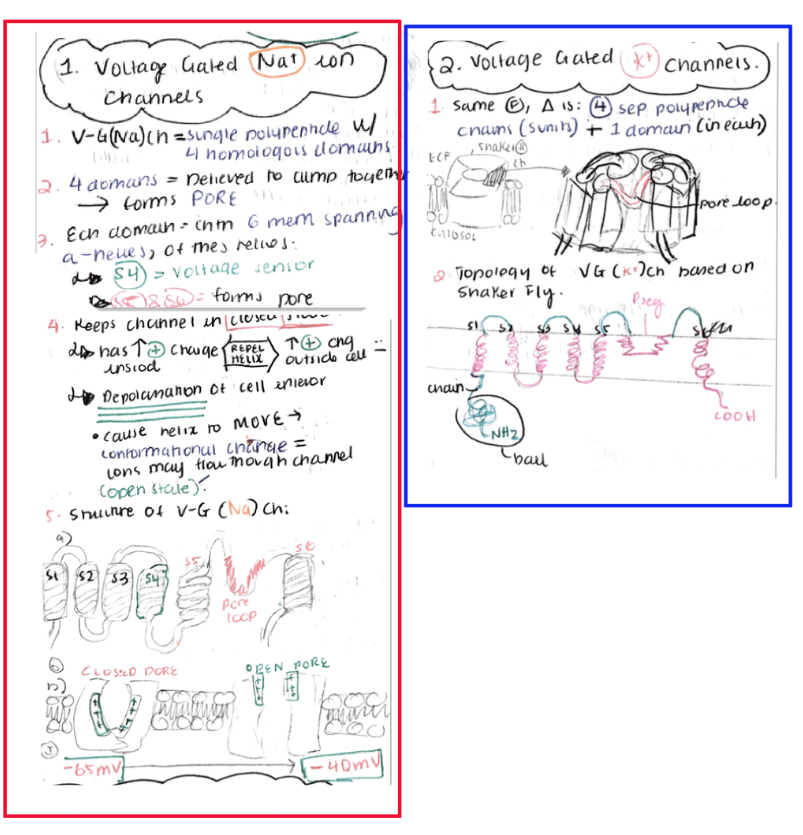 1. Voltage Gated Na+ ion
Channels
1. V-G(Na)Ch = single polypeptide w/
4 homologous domains.
2. 4 domans = believed to clump together
→ forms PORE
3. Ech domain = contn 6 mem spanning
a-helies, of thes helies.
S4 = voltage sensor
S5 & S6 = forms pore
4. Keeps channel in closed
has ↑ + charge REPEL HELIX ↑ + chg
insiod outside cell =
Depolarization of cell interior
• cause helix to MOVE →
conformational change =
ions may flow through channel
(open state).
5. Structure of V-G (Na) Ch:
a)
S1 S2 S3 S4 S5 S6
pore
loop
b)
CLOSED PORE OPEN PORE
-65mV → -40mV
2. Voltage Gated K+ Channels.
1. Same F, Δ is: 4 sep polypeptide
chains (sunits) + 1 domain (in each)
Shaker
ECF ch
pore loop.
cytosol
2. Topology of VG (K+)ch based on
Shaker Fly.
Pseg
S1 S2 S3 S4 S5 S6
chain
COOH
NH2
ball